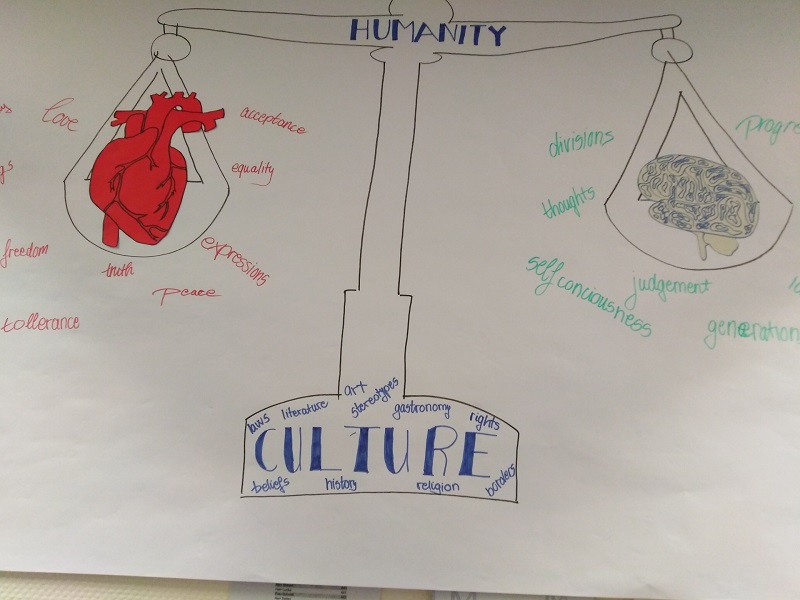 HUMANITY
love
acceptance
equality
freedom
truth
expressions
peace
tollerance
divisions
progre
thoughts
self conciousness
judgement
generation
laws
literature
art
stereotypes
gastronomy
rights
CULTURE
beliefs
history
religion
borders